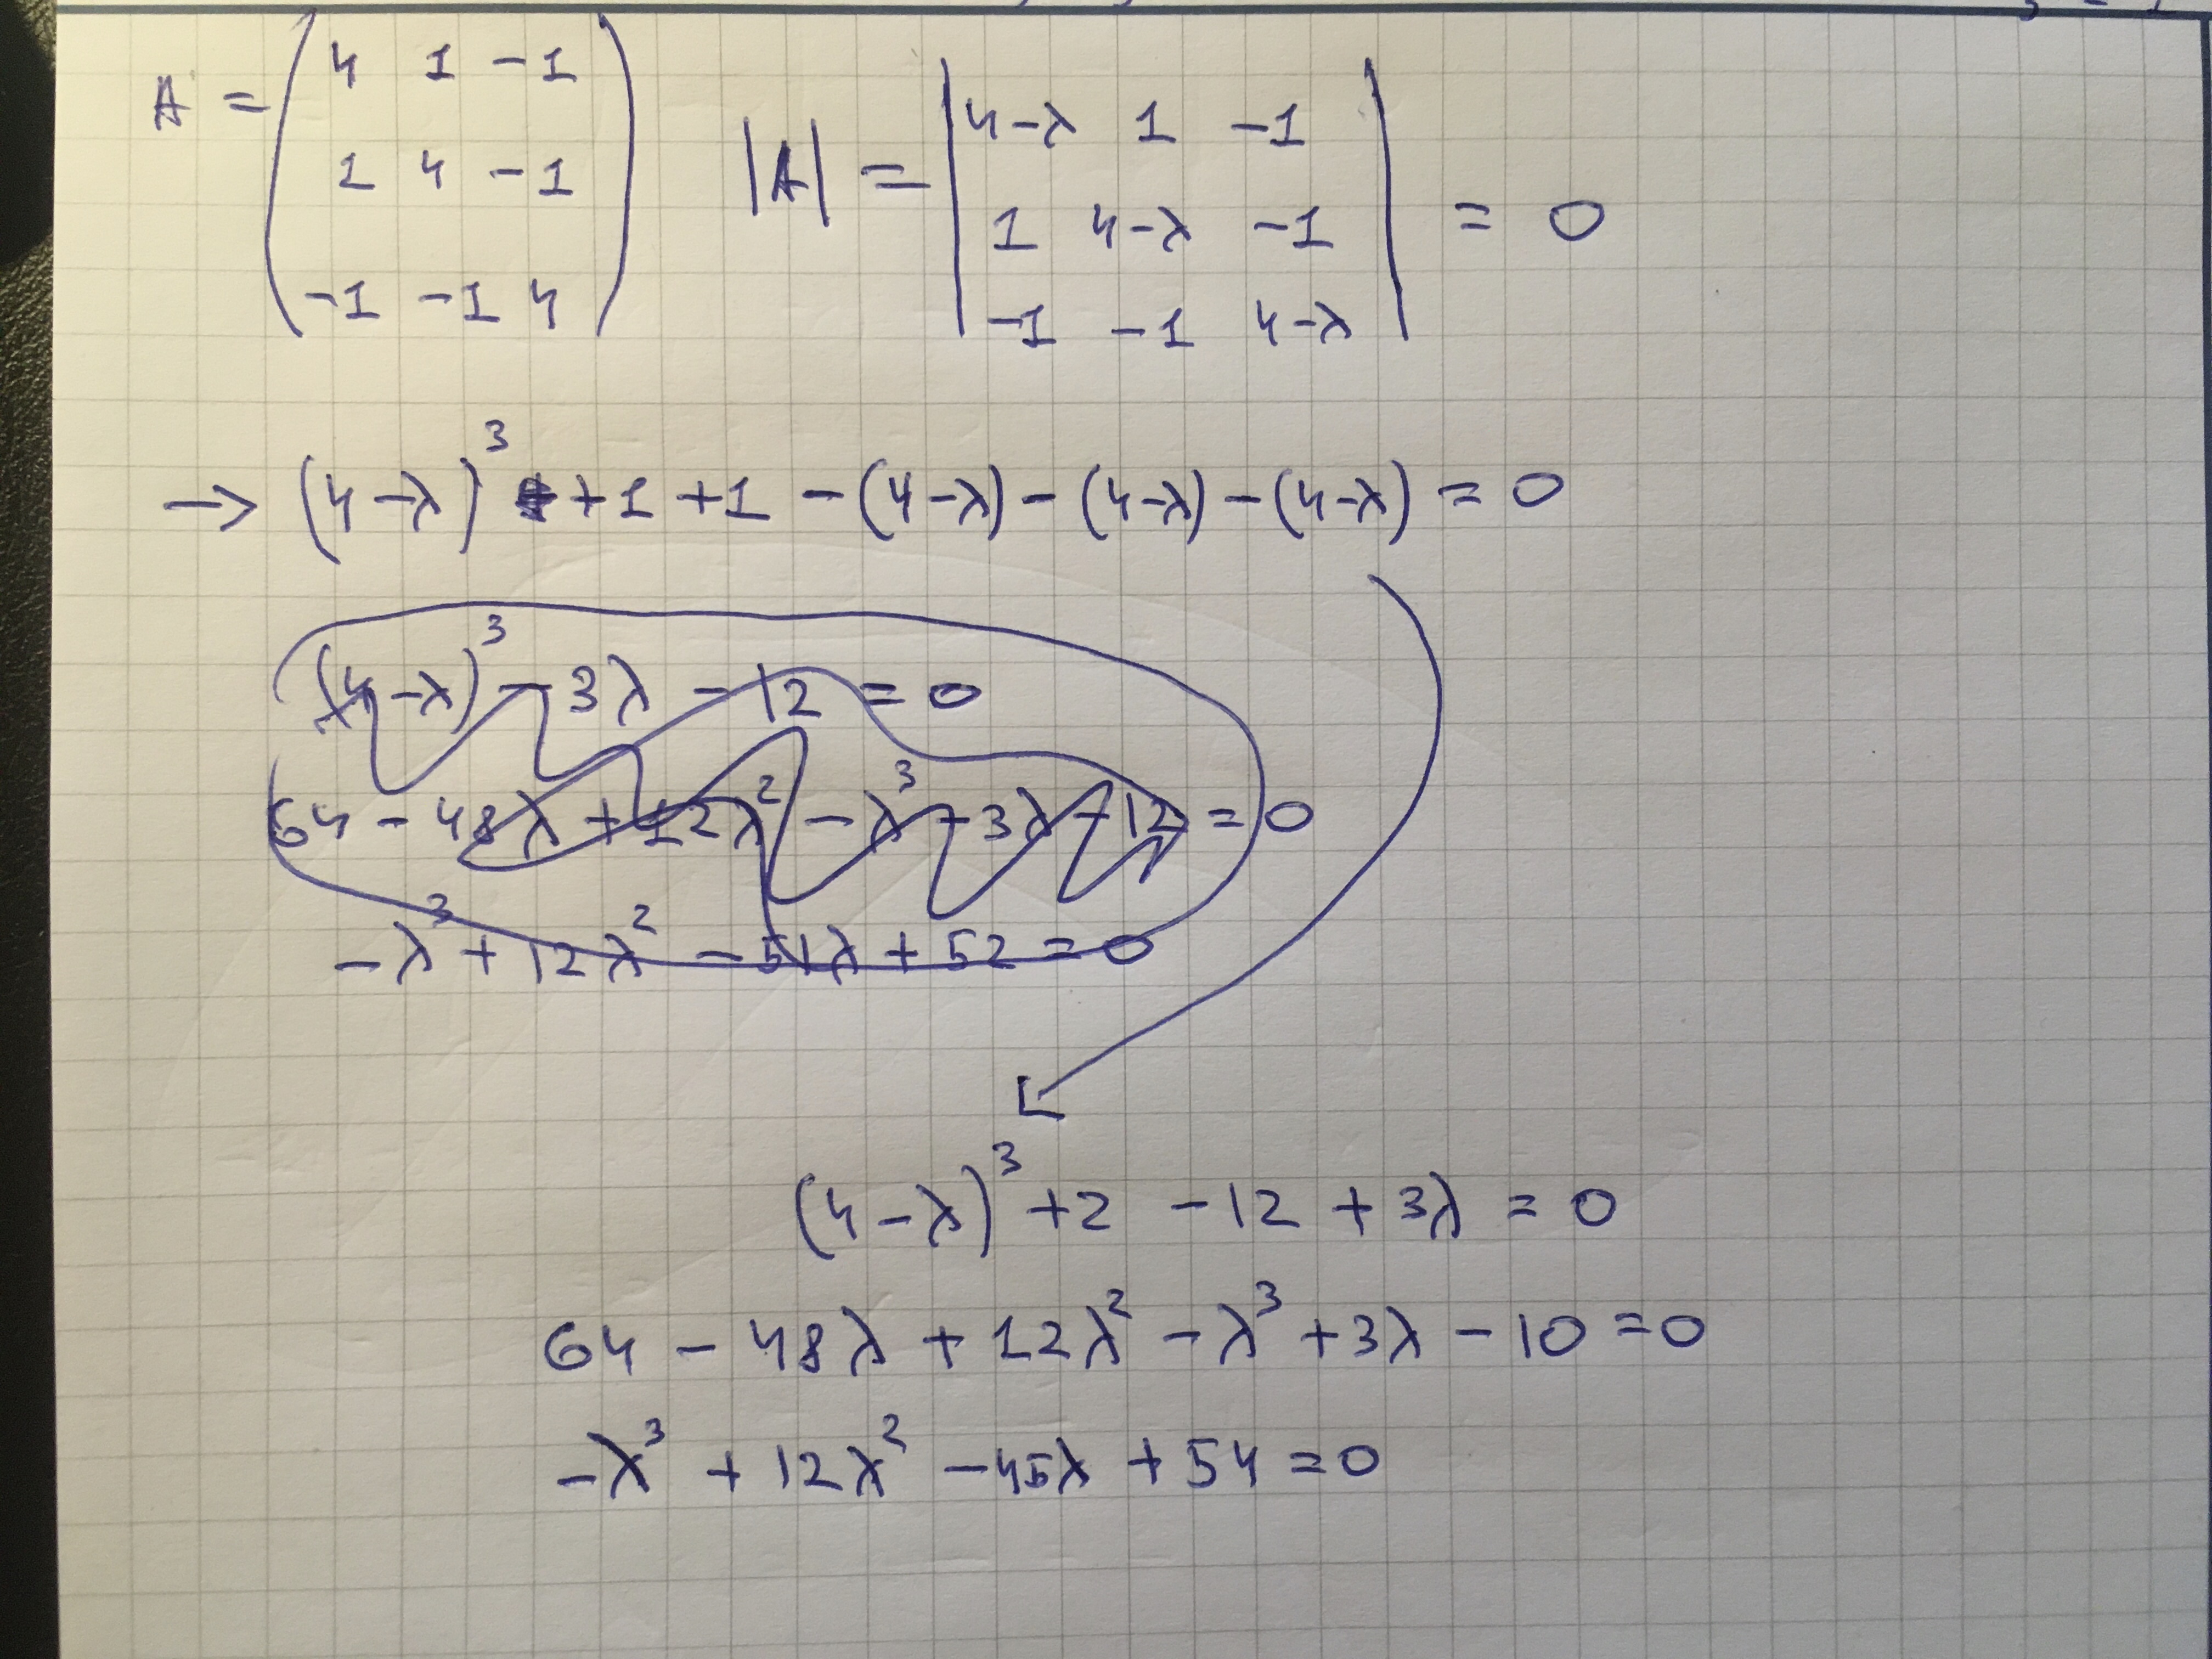 A = ( 4 1 -1 |A| = | 4-λ 1 -1 |
1 4 -1 1 4-λ -1 = 0
-1 -1 4 ) -1 -1 4-λ
→ (4-λ)³ +1 +1 - (4-λ) - (4-λ) - (4-λ) = 0
(4-λ)³ - 3λ - 12 = 0
64 - 48λ + 12λ² - λ³ - 3λ - 12 = 0
-λ³ + 12λ² - 51λ + 52 = 0
(4-λ)³ + 2 - 12 + 3λ = 0
64 - 48λ + 12λ² - λ³ + 3λ - 10 = 0
-λ³ + 12λ² - 45λ + 54 = 0